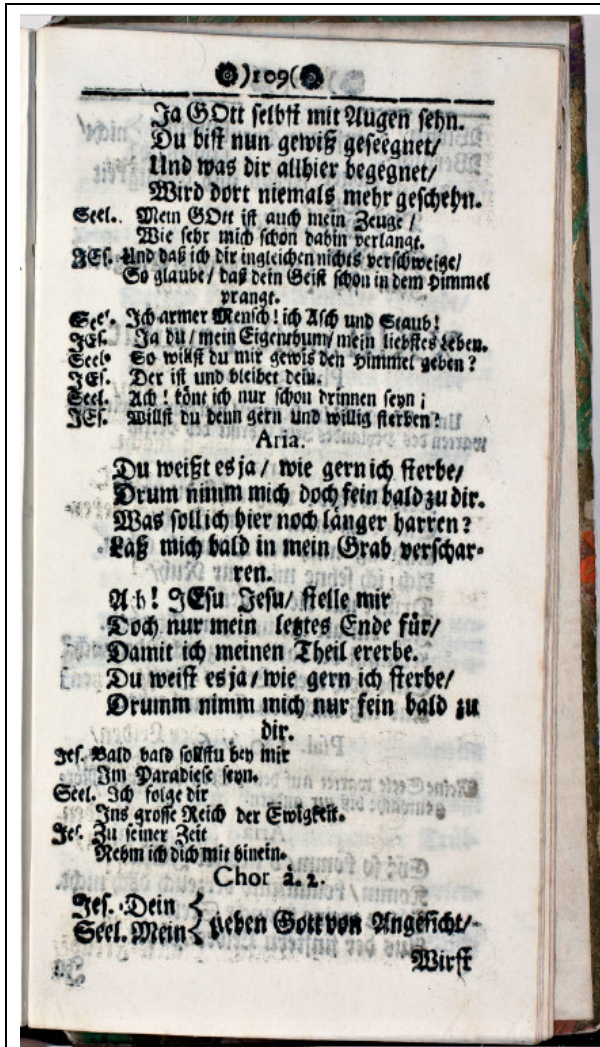 )109(
Ja GOtt selbst mit Augen sehn.
Du bist nun gewiß geseegnet/
Und was dir allhier begegnet/
Wird dort niemals mehr geschehn.
Seel. Mein GOtt ist auch mein Zeuge /
Wie sehr mich schon dahin verlangt.
JEs. Und daß ich dir ingleichen nichts verschweige/
So glaube/ daß dein Geist schon in dem Himmel
prangt.
Seel. Ich armer Mensch! ich Asch und Staub!
JEs. Ja du / mein Eigenthum/ mein liebstes Leben.
Seel. So willst du mir gewis den Himmel geben?
JEs. Der ist und bleibet dein.
Seel. Ach! könt ich nur schon drinnen seyn;
JEs. Willst du denn gern und willig sterben?
Aria.
Du weißt es ja / wie gern ich sterbe/
Drum nimm mich doch fein bald zu dir.
Was soll ich hier noch länger harren?
Laß mich bald in mein Grab verschar-
ren.
Ach! JEsu Jesu/ stelle mir
Doch nur mein letztes Ende für/
Damit ich meinen Theil ererbe.
Du weist es ja/ wie gern ich sterbe/
Drumm nimm mich nur fein bald zu
dir.
Jes. Bald bald sollstu bey mir
Im Paradiese seyn.
Seel. Ich folge dir
Ins grosse Reich der Ewigkeit.
Jes. Zu seiner Zeit
Nehm ich dich mit hinein.
Chor à. 2.
Jes. Dein
Seel. Mein { Leben Gott von Angesicht/
Wirst